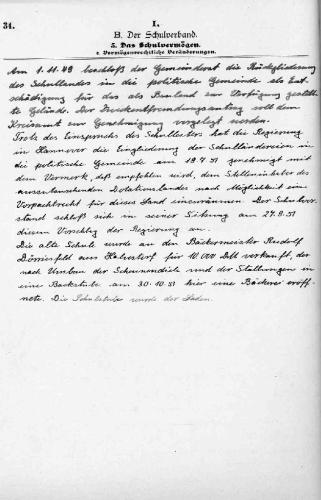 34.
I.
B. Der Schulverband.
5. Das Schulvermögen.
c. Vermögensrechtliche Veränderungen.
Am 1.11.49 beschloß der Gemeinderat die Rückgliederung
des Schullandes in die politische Gemeinde als Ent-
schädigung für das als Bauland zur Verfügung gestell-
te Gelände. Der Zweckentfremdungsantrag soll dem
Kreisamt zur Genehmigung vorgelegt werden.
Trotz des Einspruchs des Schulleiters hat die Regierung
in Hannover die Eingliederung der Schulländereien in
die politische Gemeinde am 19.7.51 genehmigt mit
dem Vermerk, daß empfohlen wird, dem Stelleninhaber des
auszutauschenden Dotationslandes nach Möglichkeit ein
Vorpachtrecht für dieses Land einzuräumen. Der Schulvor-
stand schloß sich in seiner Sitzung am 27.8.51
diesem Vorschlag der Regierung an.
Die alte Schule wurde an den Bäckermeister Rudolf
Dörriesfeld aus Halvestorf für 10.000 DM verkauft, der
nach Umbau der Scheunendiele und der Stallungen in
eine Backstube am 30.10.51 hier eine Bäckerei eröff-
nete. Die Schulstube wurde der Laden.